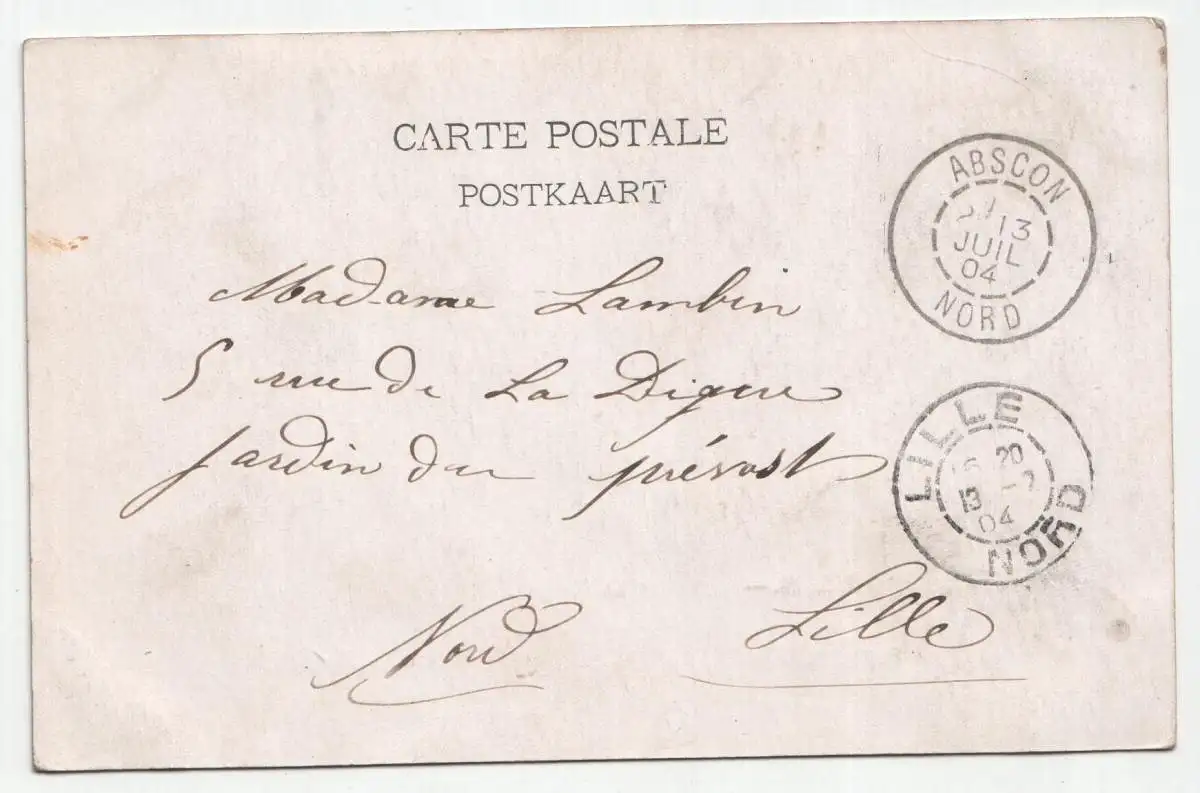 CARTE POSTALE
POSTKAART
ABSCON
13
JUIL
04
NORD
Madame Lambin
5 rue de La Digue
Jardin du prévost
LILLE
20
13 -7
04
NORD
Nord Lille